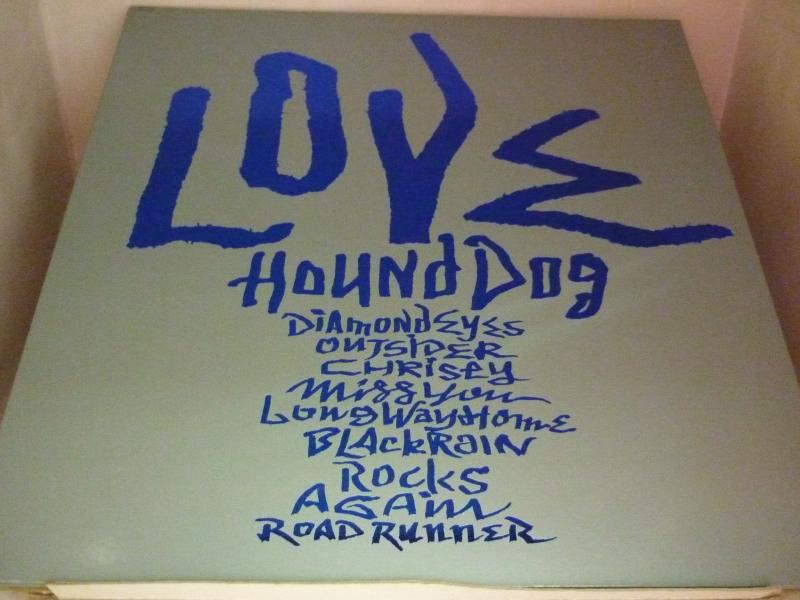 LOVE
HOUND DOG
DIAMOND EYES
OUTSIDER
CHRISEY
Miss You
LONG WAY HOME
BLACK RAIN
ROCKS
AGAIN
ROAD RUNNER